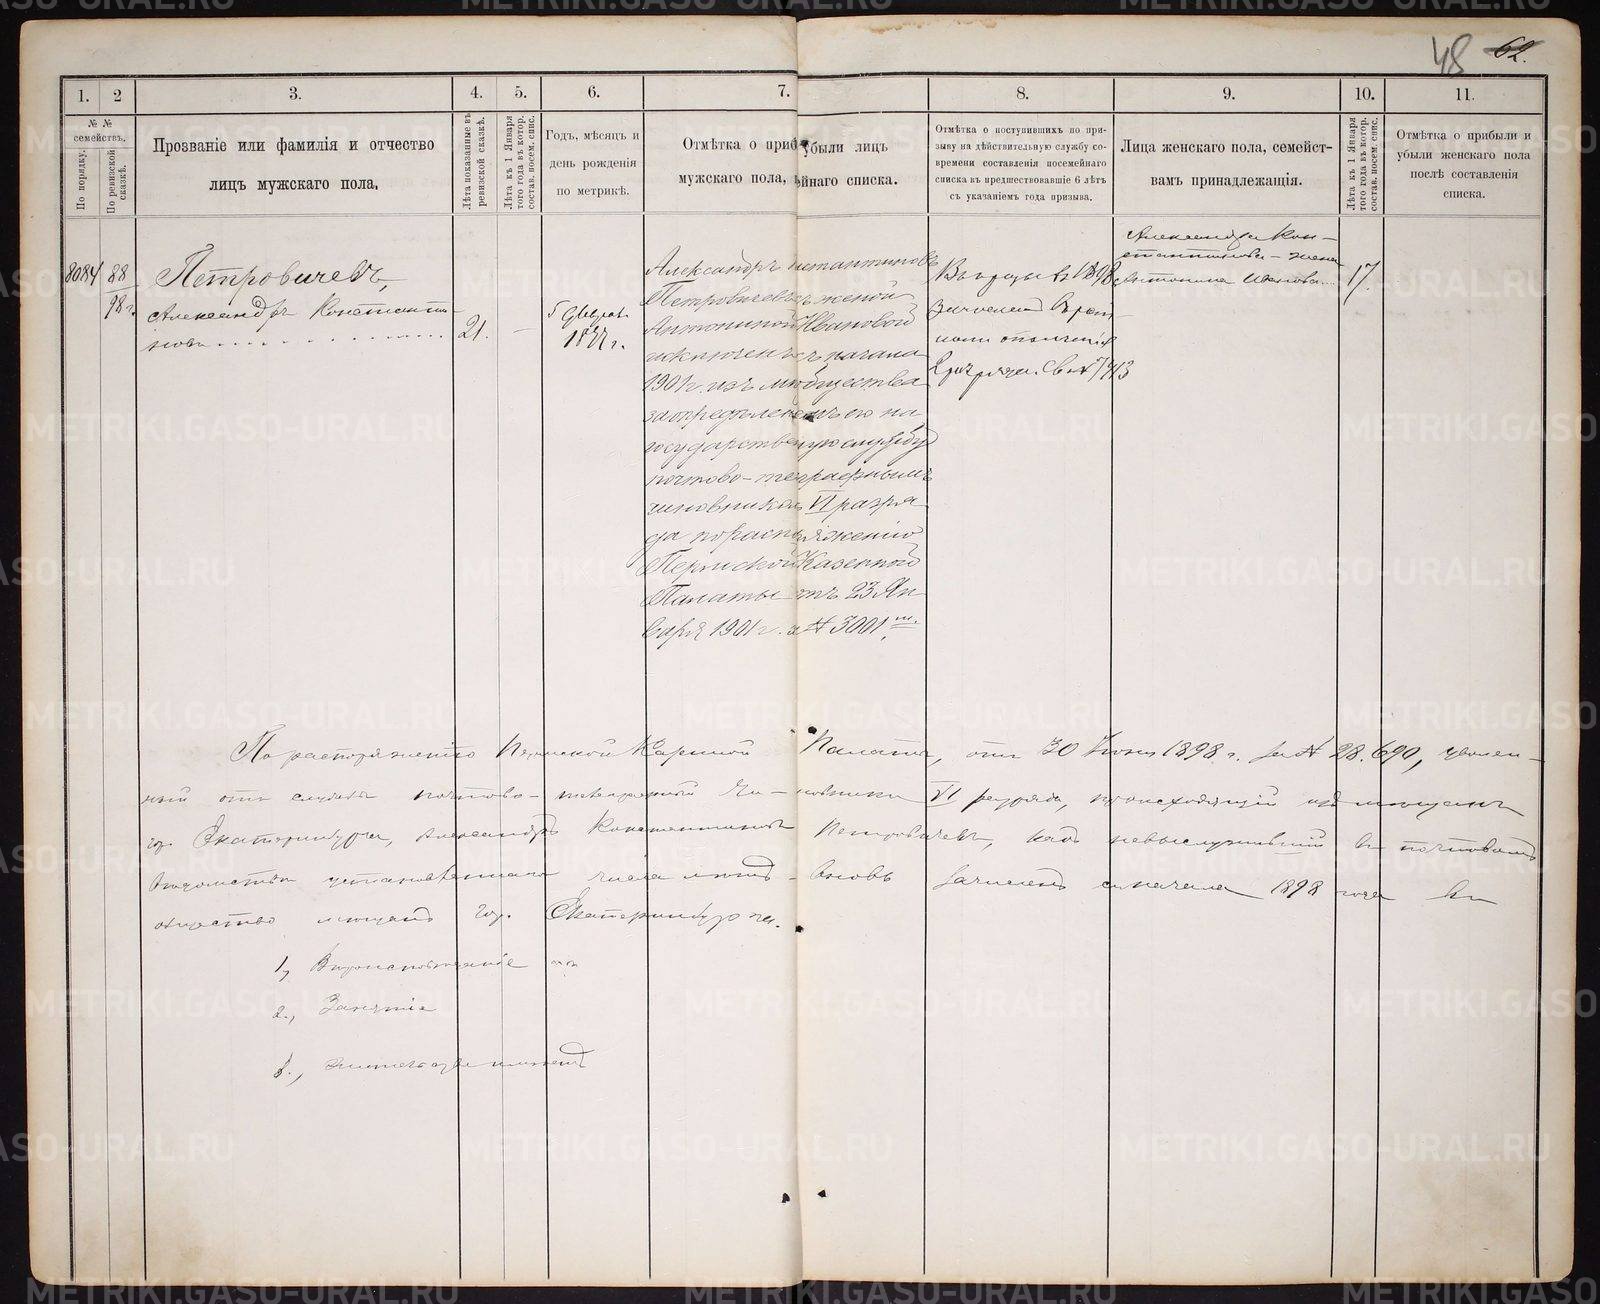 48 62.
1.
2
3.
4.
5.
6.
7.
8.
9.
10.
11.
№ №
семействъ.
По порядку.
По ревизской
сказкѣ.
Прозваніе или фамилія и отчество
лицъ мужскаго пола,
Лѣта показанные въ
ревизской сказкѣ.
Лѣта къ 1 Января
того года въ котор.
состав. посем. спис.
Годъ, мѣсяцъ и
день рожденія
по метрикѣ.
Отмѣтка о приб убыли лицъ
мужскаго пола, ейнаго списка.
Отмѣтка о поступившихъ по при-
зыву на дѣйствительную службу со-
времени составленія посемейнаго
списка въ предшествовавшіе 6 лѣтъ
съ указаніемъ года призыва.
Лица женскаго пола, семейст-
вамъ принадлежащія.
Лѣта къ 1 Января
того года въ котор.
состав. посем. спис.
Отмѣтка о прибыли и
убыли женскаго пола
послѣ составленія
списка.
8084
88
98 г.
Петровичевъ,
Александръ Константи-
новъ
21.
5 Феврал.
1877 г.
Александръ нстантиновъ
Петровичевъ женой
Антониной Ивановой
исключенъ съ начала
1901 г. изъ общества
за опредѣлен его на
государственную службу
почтово-телеграфнымъ
чиновникомъ VI разря
да по распоряженію
Пермской Казенной
Палаты отъ 23 Ян
варя 1901 г. за № 3001.
Въ призывъ 1898
зачисленъ въ рат
ники ополченія
разряда. Св. № 7413
Александра Кон-
стантинова - жена
Антонина Иванова
17.
По распоряженію Пермской Казенной Палаты, отъ 30 Іюня 1898 г. за № 28.690, уволен-
ный отъ службы почтово-телеграфный Чи-новникъ VI разряда, происходящій изъ мѣщанъ
гор. Екатеринбурга, Александръ Константиновъ Петровичевъ, какъ невыслужившій въ почтовомъ
вѣдомствѣ установленнаго числа лѣтъ - вновь зачисленъ съ начала 1898 года въ
общество мѣщанъ гор. Екатеринбурга.
1, Вѣроисповѣданіе
2., Занятіе
3.,